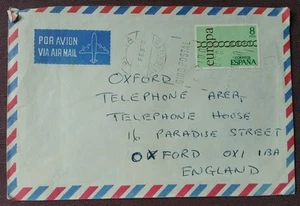 POR AVION
VIA AIR MAIL
8
europa
ESPAÑA
OXFORD
TELEPHONE AREA,
TELEPHONE HOUSE
16 PARADISE STREET
OXFORD OX1 1BA
ENGLAND